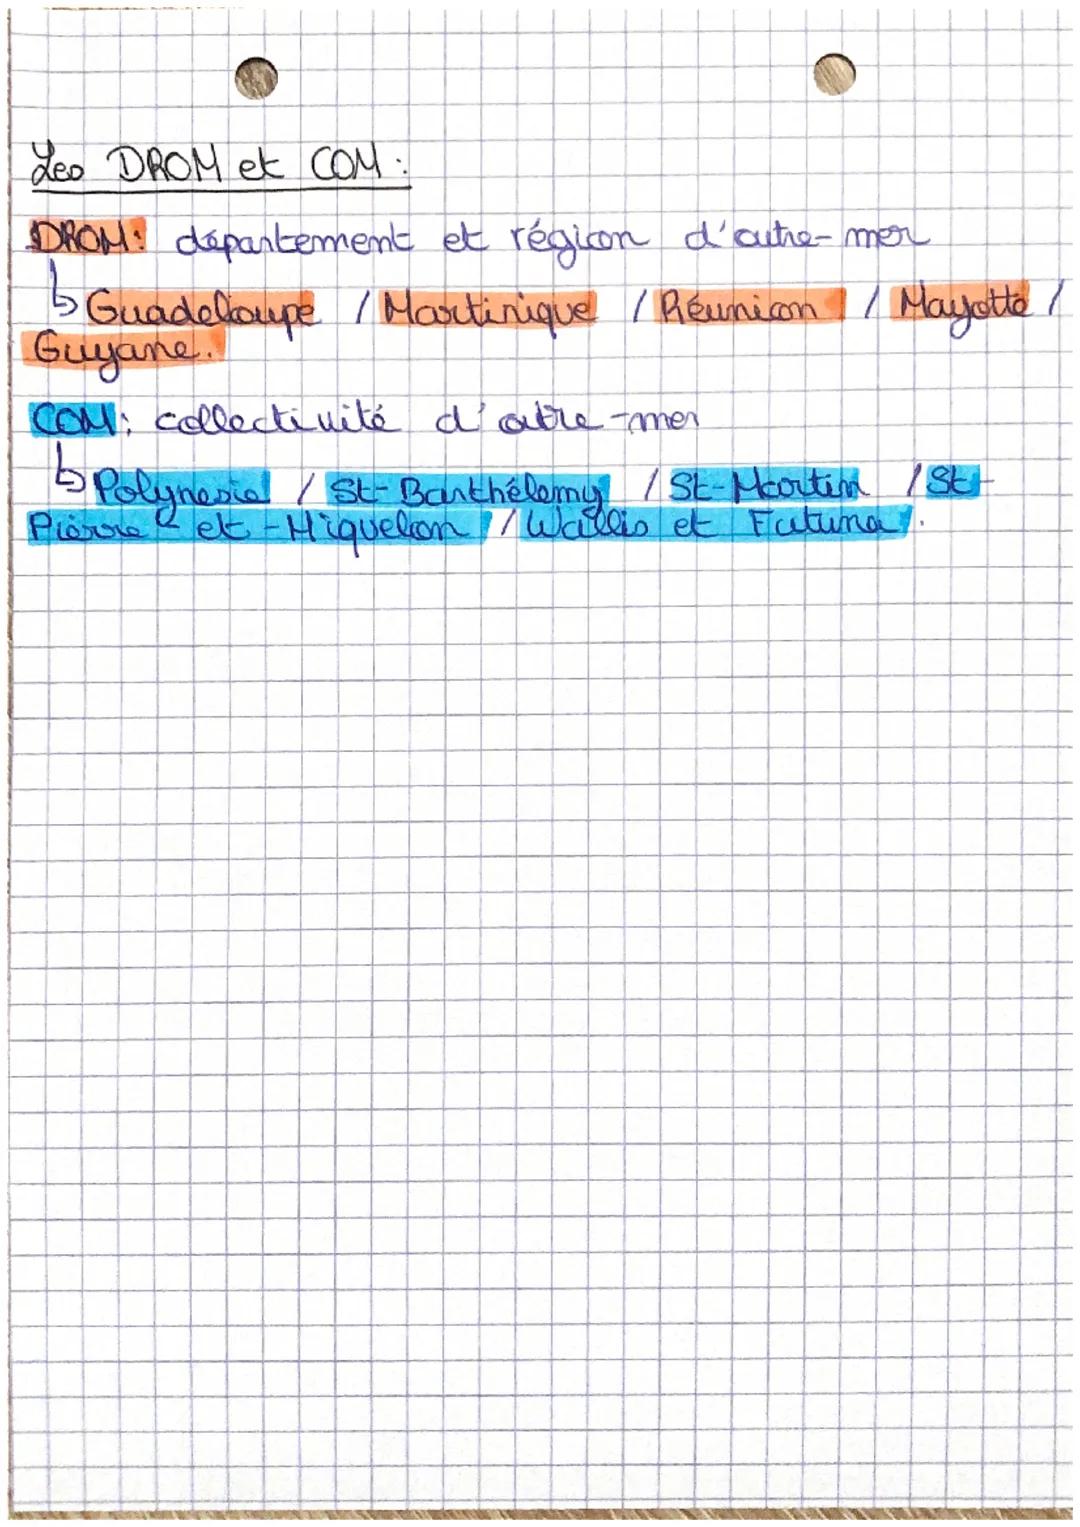 Les DROM et COM :
DROM: département et région d'outre-mer
↳ Guadeloupe / Martinique / Réunion / Mayotte /
Guyane.
COM: collectivité d'outre-mer
↳ Polynesie / St-Barthélemy / St-Martin / St-
Pierre et-Miquelon / Wallis et Futuna.